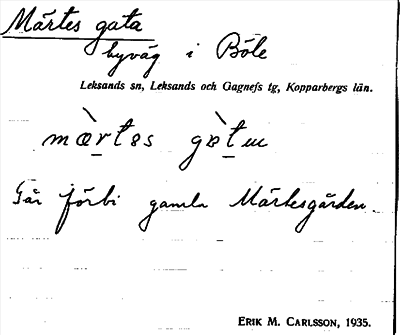 Märtes gata
byväg i Böle
Leksands sn, Leksands och Gagnefs tg, Kopparbergs län.
mæ̀rtəs gòtu
Går förbi gamla Märtesgården.
ERIK M. CARLSSON, 1935.